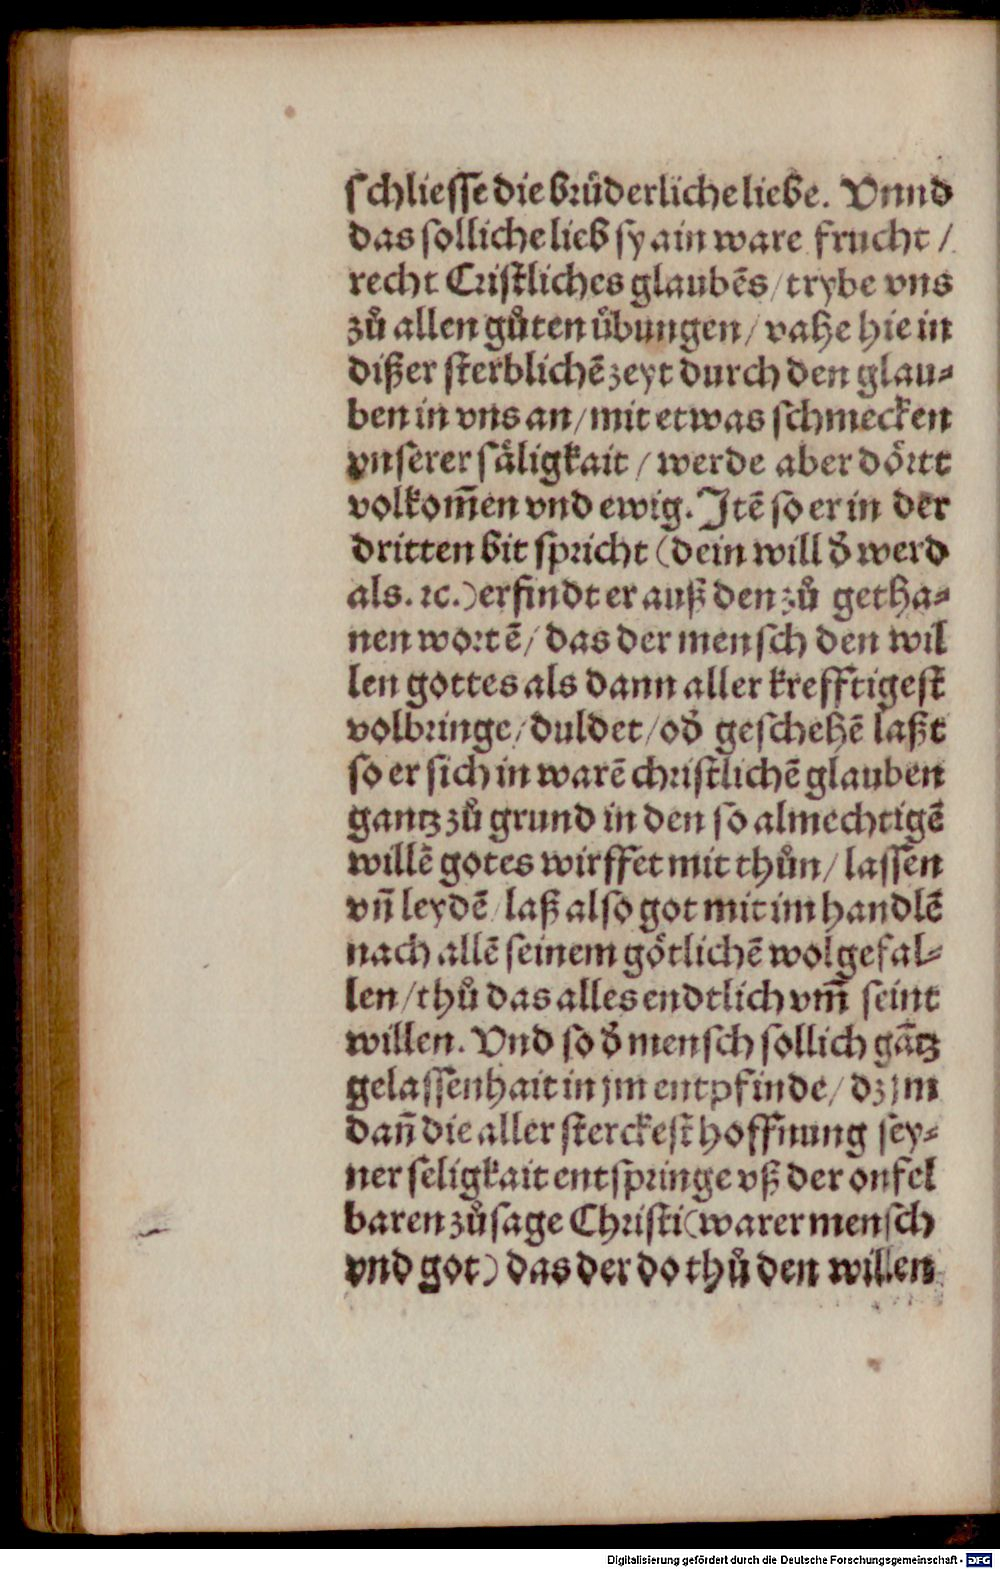 schliesse die brůderliche liebe. Vnnd
das solliche lieb sy ain ware frucht /
recht Cristliches glaubēs / trybe vns
zů allen gůten übungen / vahe hie in
dißer sterblichē zeyt durch den glau⸗
ben in vns an / mit etwas schmecken
vnserer säligkait / werde aber dörtt
volkom̄en vnd ewig. Jtē so er in der
dritten bit spricht (dein will d̄ werd
als. ꝛc.) erfindt er auß den zů getha⸗
nen wortē / das der mensch den wil
len gottes als dann aller krefftigest
volbringe / duldet / od̄ geschehē laßt
so er sich in warē christlichē glauben
gantz zů grund in den so almechtigē
willē gotes wirffet mit thůn / lassen
vn̄ leydē / laß also got mit im handlē
nach allē seinem götlichē wolgefal⸗
len / thů das alles endtlich vm̄ seint
willen. Vnd so d̄ mensch sollich gātz
gelassenhait in jm entpfinde / dz jm
dan̄ die aller sterckest hoffnung sey⸗
ner seligkait entspringe vß der onfel
baren zůsage Christi (warer mensch
vnd got) das der do thů den willen
Digitalisierung gefördert durch die Deutsche Forschungsgemeinschaft - DFG